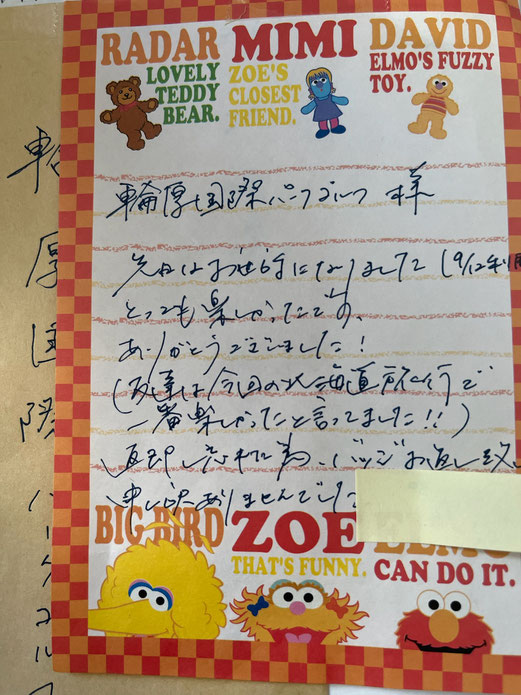 RADAR MIMI DAVID
LOVELY TEDDY BEAR.
ZOE'S CLOSEST FRIEND.
ELMO'S FUZZY TOY.
輪厚国際パークゴルフ 様
先日はお世話になりました(9/12利用
とっても楽しかったです。
ありがとうございました!
(友達は今回の北海道旅行で
一番楽しかったと言ってました!!)
返却し忘れた為、バッジお返し致し
申し訳ありませんでした
BIG BIRD ZOE ELMO
THAT'S FUNNY. CAN DO IT.
輪厚国際パークゴルフ